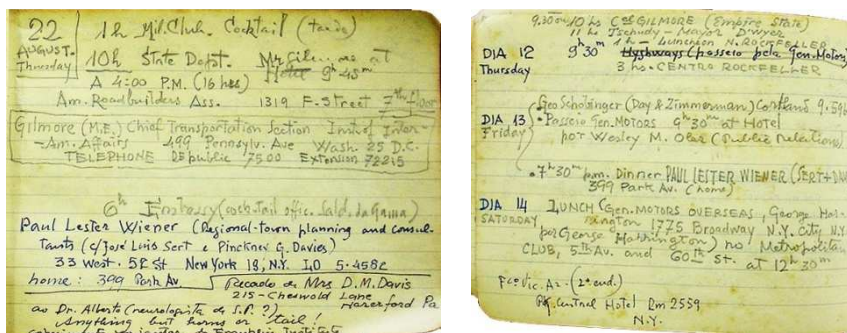 22
AUGUST.
Thursday
1h Mil. Club. Cocktail (tarde)
10h State Dept. Mr Gilmore at
Hotel 9h 45m
A 4:00 P.M. (16 hs)
Am. Roadbuilders Ass. 1319 F. Street 7th floor
Gilmore (M.E.) Chief Transportation Section Inst. of Inter-
-Am. Affairs 499 Pennsylv. Ave Wash. 25 D.C.
TELEPHONE REpublic 7500 Extension 72215
6h Embassy (cocktail offic. Sald. da Gama)
Paul Lester Wiener (Regional-town planning and consul-
tants (c/José Luis Sert e Pinckney G. Davies)
33 West. 52 St New York 19, N.Y. LO 5-4582
home: 399 Park Av.
Recado de Mrs D.M. Davis
215-Cheswold Lane
Haverford Pa
ao Dr. Alberto (neurologista de S.P.?)
Anything but horns or tail!
9.30m/10 hs Cel GILMORE (Empire State)
11 hs Tschudy - Mayor O'Dwyer
1h - Luncheon N. ROCKFELLER
DIA 12
Thursday
9h30m Hyghways (passeio pela Gen. Motors)
3 hs. CENTRO ROCKFELLER
DIA 13
Friday
Geo Schobinger (Day & Zimmerman) Cortland 9.596
• Passeio Gen. MOTORS 9h30m at Hotel
por Wesley M. Oler (Public relations)
• 7h30m p.m. Dinner PAUL LESTER WIENER (SERT+DAV
399 Park Av. (home)
DIA 14
SATURDAY
LUNCH (Gen. MOTORS OVERSEAS, George Har-
rington 1775 Broadway N.Y. City N.Y.
por George Harrington) no Metropolitan
CLUB, 5th Av. and 60th St. at 12h30m
(2º end.)
Pk. Central Hotel Rm 2559
N.Y.